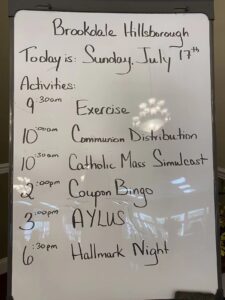 Brookdale Hillsborough
Today is: Sunday, July 17th
Activities:
9:30am Exercise
10:00am Communion Distribution
10:30am Catholic Mass Simulcast
2:00pm Coupon Bingo
3:00pm AYLUS
6:30pm Hallmark Night